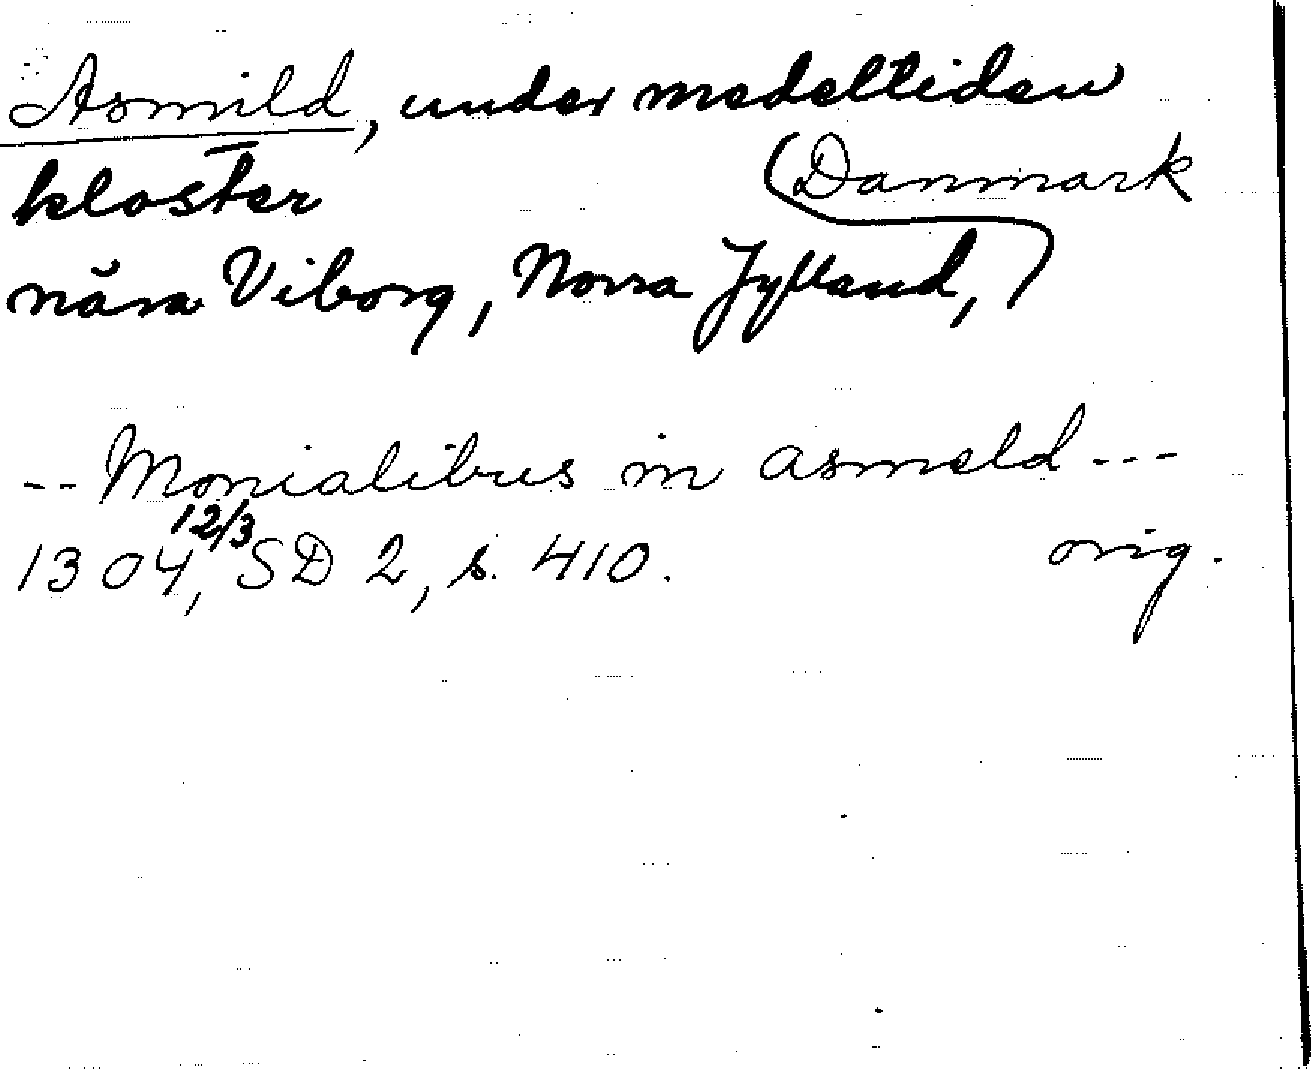 Asmild, under medeltiden
kloster (Danmark
nära Viborg, Norra Jylland,
-- Monialibus in asmeld ---
1304 12/3, SD 2, s. 410. orig.